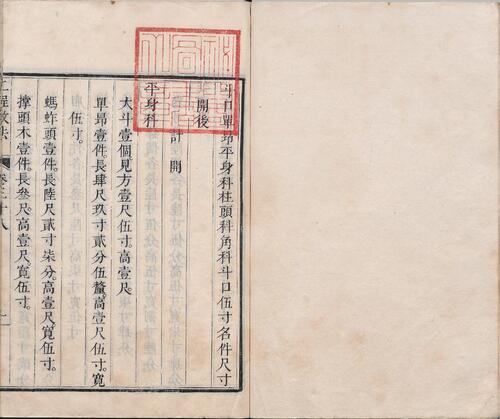 斗口單昂平身科柱頭科角科斗口伍寸名件尺寸
開後
計開
平身科
大斗壹個見方壹尺伍寸高壹尺
單昂壹件長肆尺玖寸貳分伍釐高壹尺伍寸寬
伍寸
螞蚱頭壹件長陸尺貳寸柒分高壹尺寬伍寸
撑頭木壹件長叁尺高壹尺寬伍寸
工程做法
卷三十八